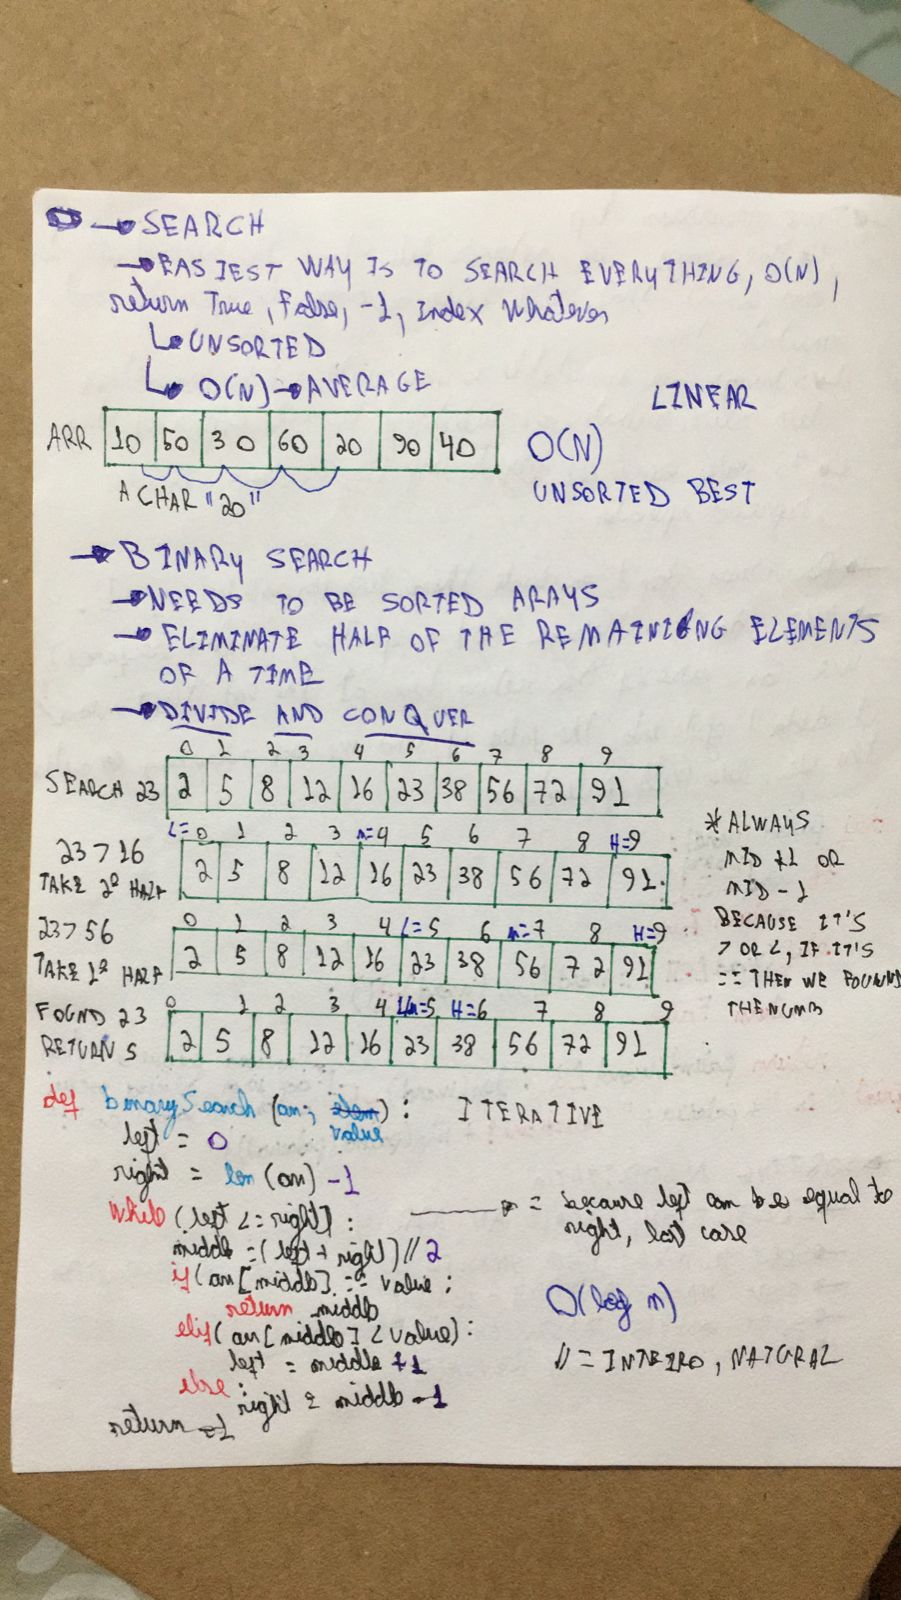 → SEARCH
→ EASIEST WAY IS TO SEARCH EVERYTHING, O(N),
return True, False, -1, Index Whatever
↳ UNSORTED
↳ O(N) → AVERAGE
LINEAR
ARR 10 50 30 60 20 90 40
O(N)
A CHAR "20"
UNSORTED BEST
→ BINARY SEARCH
→ NEEDS TO BE SORTED ARAYS
→ ELIMINATE HALF OF THE REMAINING ELEMENTS
OF A TIME
→ DIVIDE AND CONQUER
0 1 2 3 4 5 6 7 8 9
SEARCH 23 2 5 8 12 16 23 38 56 72 91
L=0 1 2 3 m=4 5 6 7 8 H=9
23 > 16
TAKE 2º HALF 2 5 8 12 16 23 38 56 72 91
0 1 2 3 4 L=5 6 m=7 8 H=9
23 > 56
TAKE 1º HALF 2 5 8 12 16 23 38 56 72 91
0 1 2 3 4 L=m=5 H=6 7 8 9
FOUND 23
RETURN 5 2 5 8 12 16 23 38 56 72 91
* ALWAYS
MID +1 OR
MID - 1
BECAUSE IT'S
> OR <, IF IT'S
== THEN WE FOUND
THE NUMB
def binarySearch (arr, value): ITERATIVE
left = 0
right = len (arr) - 1
while (left <= right): → = because left can be equal to
right, last case
middle = (left + right) // 2
if (arr[middle] == value:
return middle
elif (arr[middle] < value):
left = middle + 1
else:
right = middle - 1
return -1
O(log n)
// = INTEIRO, NATURAL